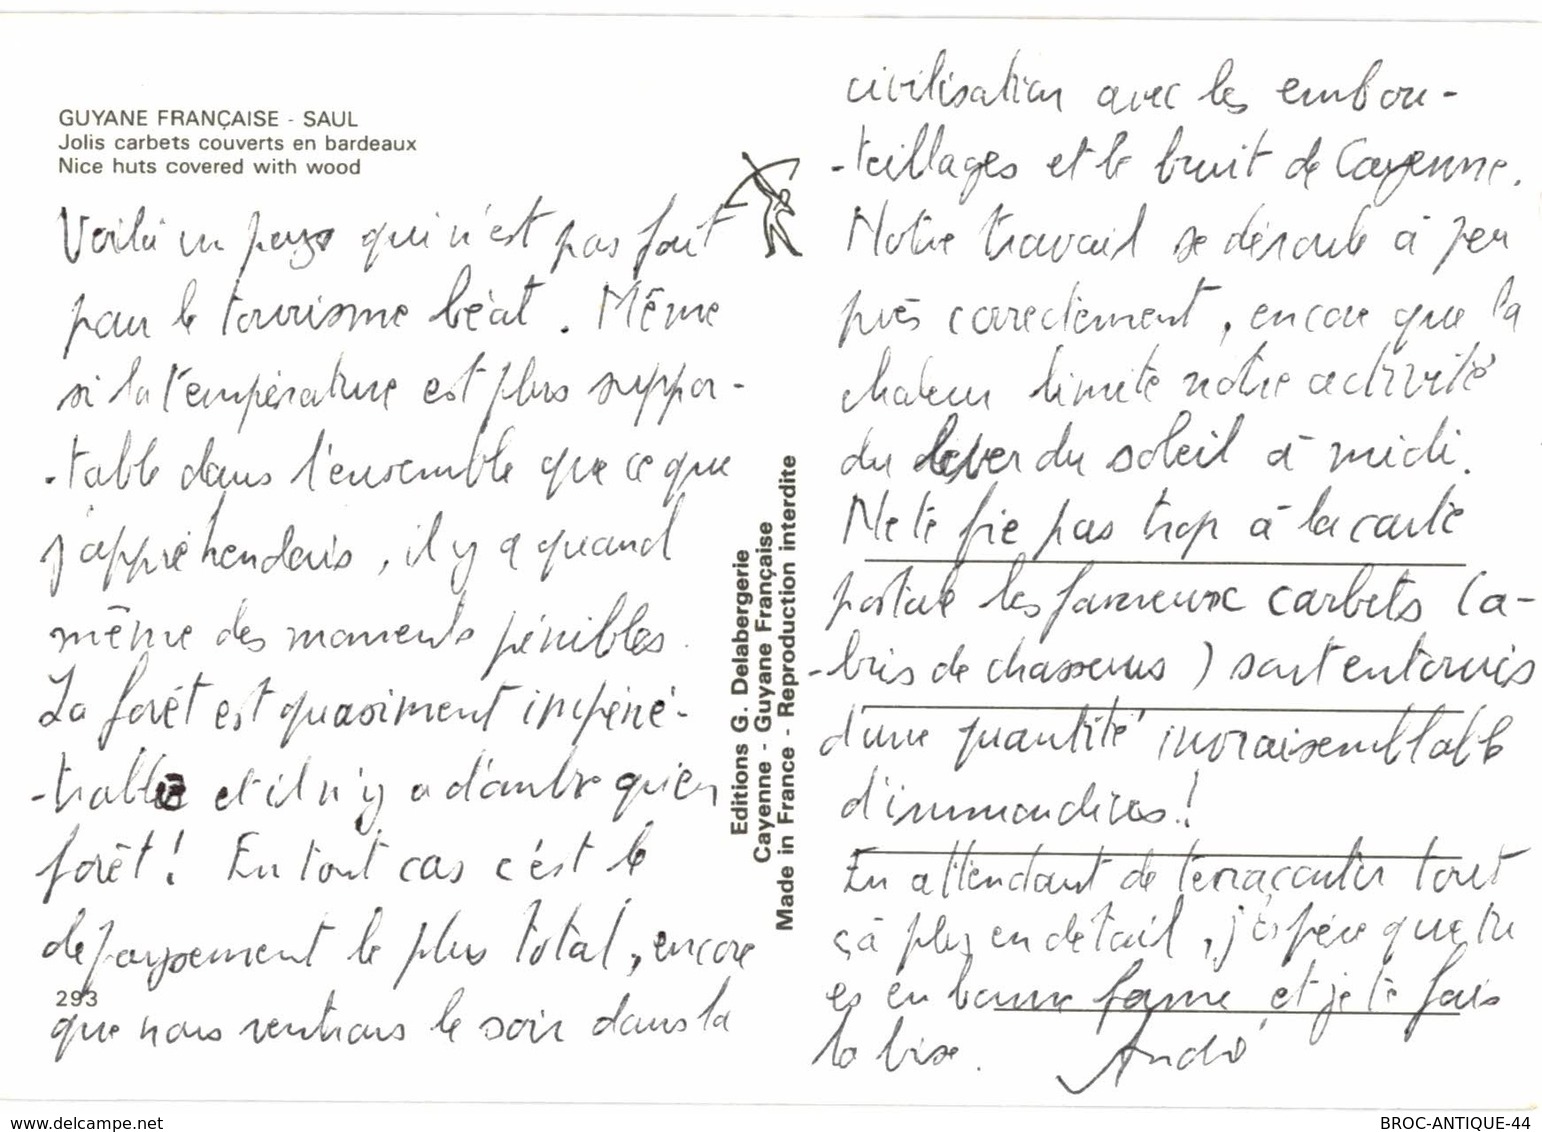 GUYANE FRANÇAISE - SAUL
Jolis carbets couverts en bardeaux
Nice huts covered with wood
Voilà un pays qui n'est pas fait
pour le tourisme béat. Même
si la température est plus suppor-
-table dans l'ensemble que ce que
j'appréhendais, il y a quand
même des moments pénibles.
La forêt est quasiment impéné-
-trable et il n'y a d'ombre qu'en
forêt! En tout cas c'est le
depaysement le plus total, encore
293
que nous rentrions le soir dans la
Editions G. Delabergerie
Cayenne - Guyane Française
Made in France - Reproduction interdite
civilisation avec les embou-
-teillages et le bruit de Cayenne.
Notre travail se déroule à peu
près correctement, encore que la
chaleur limite notre activité
du lever du soleil à midi.
Ne te fie pas trop à la carte
postale les fameux carbets (a-
-bris de chasseurs) sont entourés
d'une quantité invraisemblable
d'immondices!
En attendant de te raconter tout
çà plus en détail, j'espère que tu
es en bonne forme et je te fais
la bise. André
www.delcampe.net
BROC-ANTIQUE-44